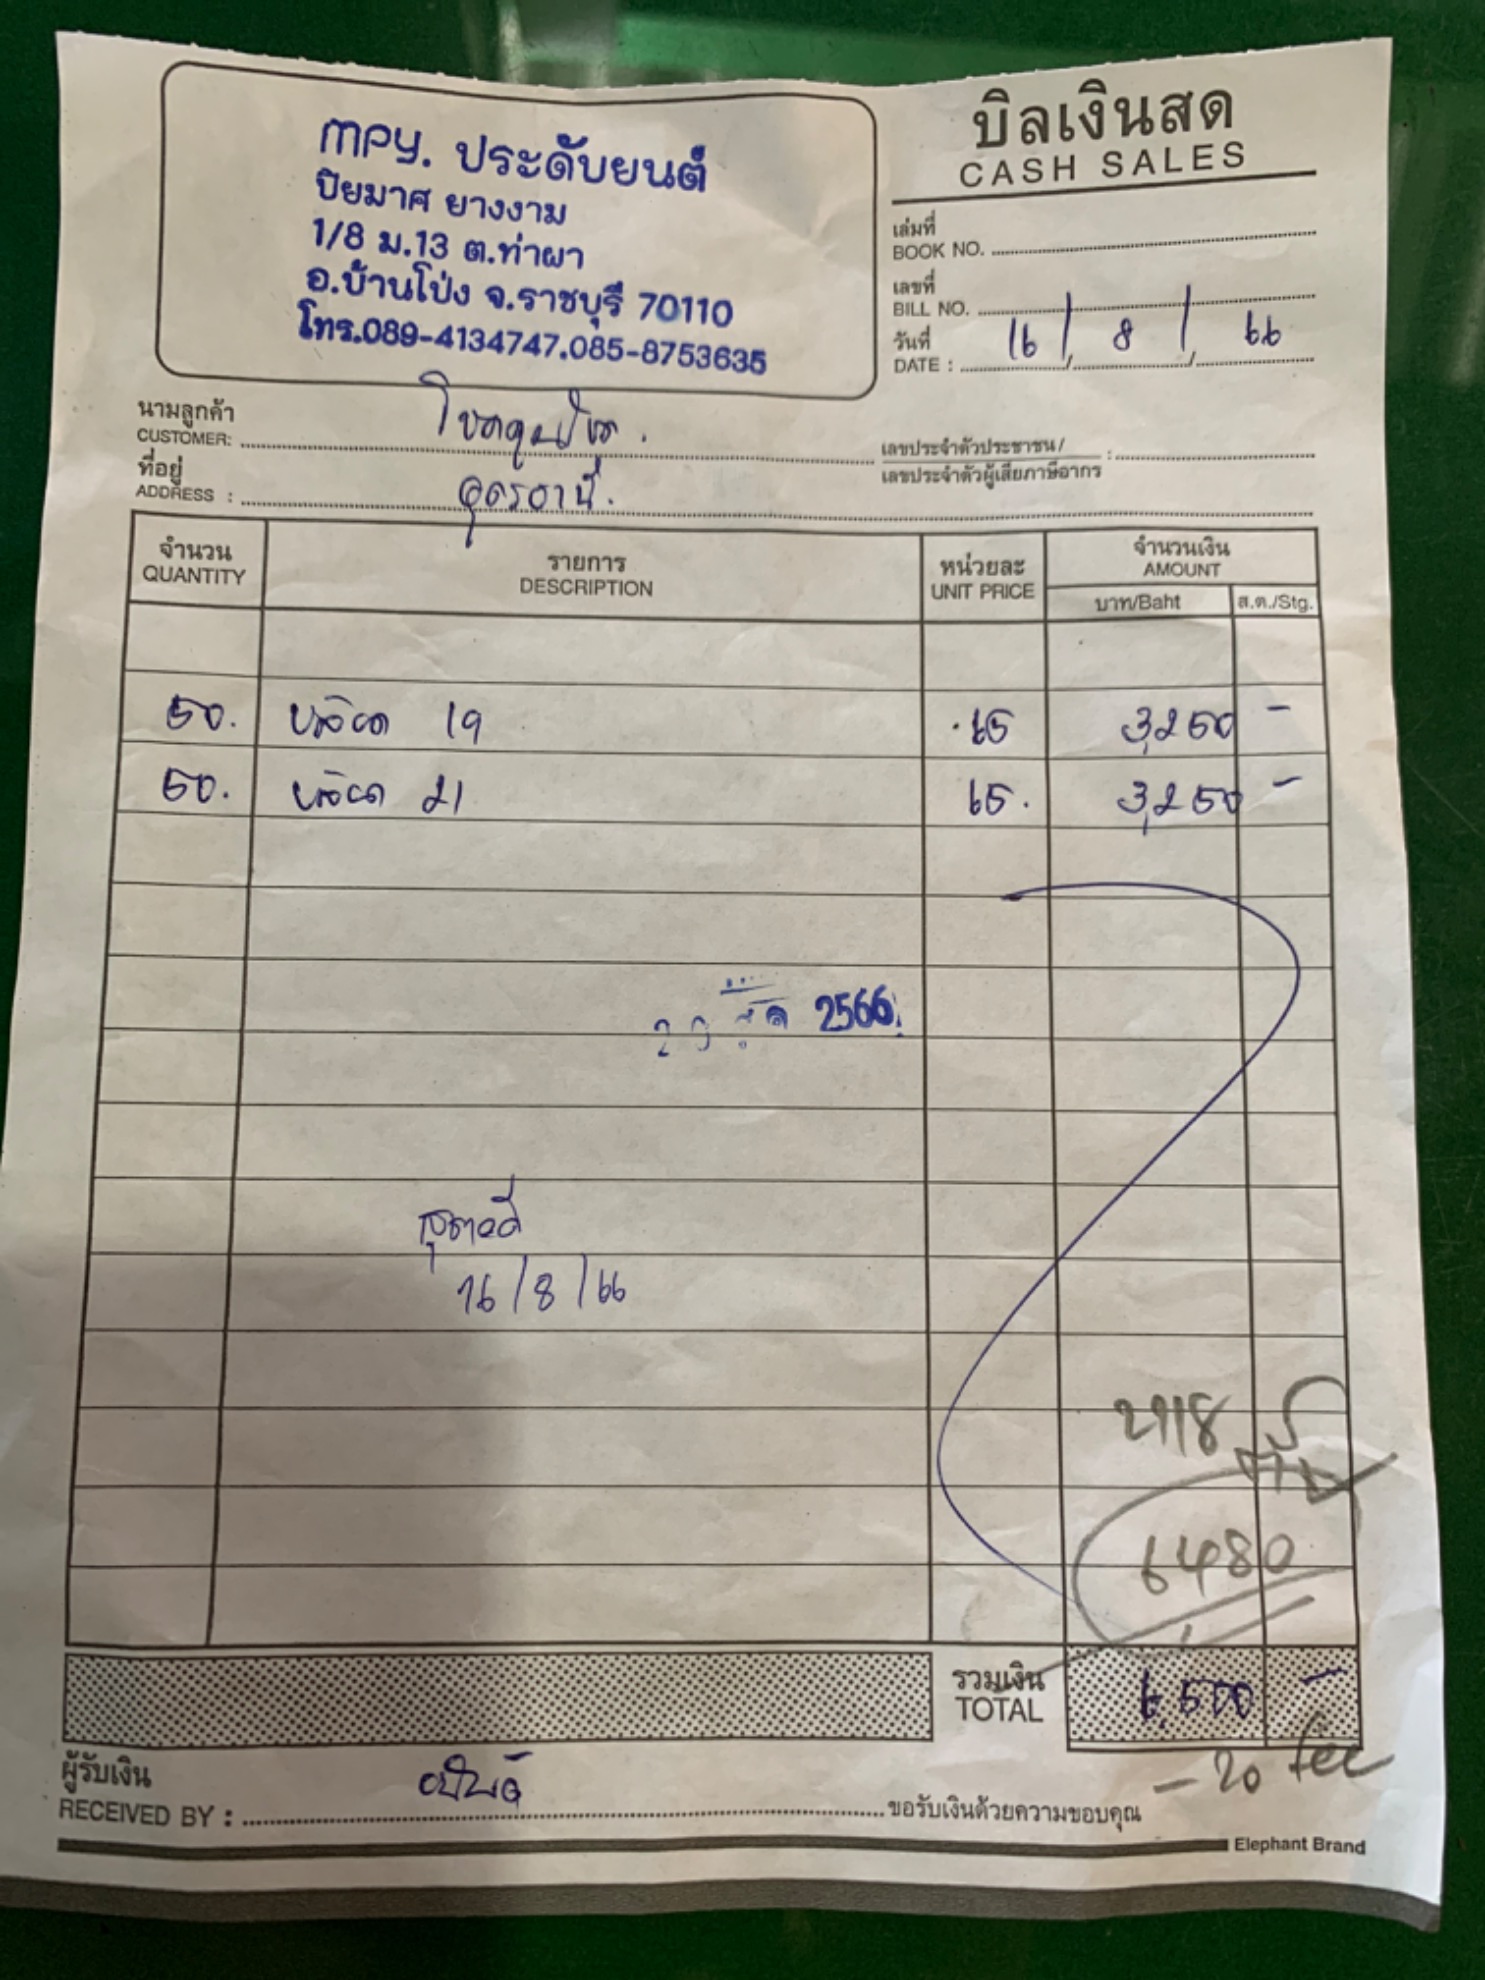 MPY. ประดับยนต์
ปิยมาศ ยางงาม
1/8 ม.13 ต.ท่าผา
อ.บ้านโป่ง จ.ราชบุรี 70110
โทร.089-4134747,085-8753635
บิลเงินสด
CASH SALES
เล่มที่
BOOK NO.
เลขที่
BILL NO.
วันที่
DATE : 16 / 8 / 66
นามลูกค้า
CUSTOMER:
เลขประจำตัวประชาชน /
เลขประจำตัวผู้เสียภาษีอากร :
ที่อยู่
ADDRESS : อุดรธานี.
จำนวน รายการ หน่วยละ จำนวนเงิน
QUANTITY DESCRIPTION UNIT PRICE AMOUNT
บาท/Baht ส.ต./Stg.
50. 19 65 3,250 -
50. 21 65. 3,250 -
2566
16/8/66
2118
6480
รวมเงิน
TOTAL 6,500 -
- 20 fee
ผู้รับเงิน
RECEIVED BY : ขอรับเงินด้วยความขอบคุณ
Elephant Brand